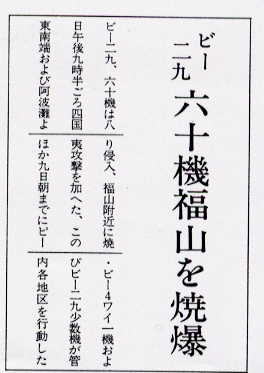 ビー二九 六十機福山を焼爆
ビー二九、六十機は八
日午後九時半ごろ四国
東南端および阿波灘よ
り侵入、福山附近に焼
夷攻撃を加へた、この
ほか九日朝までにビー
・ビー4ワイ一機およ
びビー二九少数機が管
内各地区を行動した